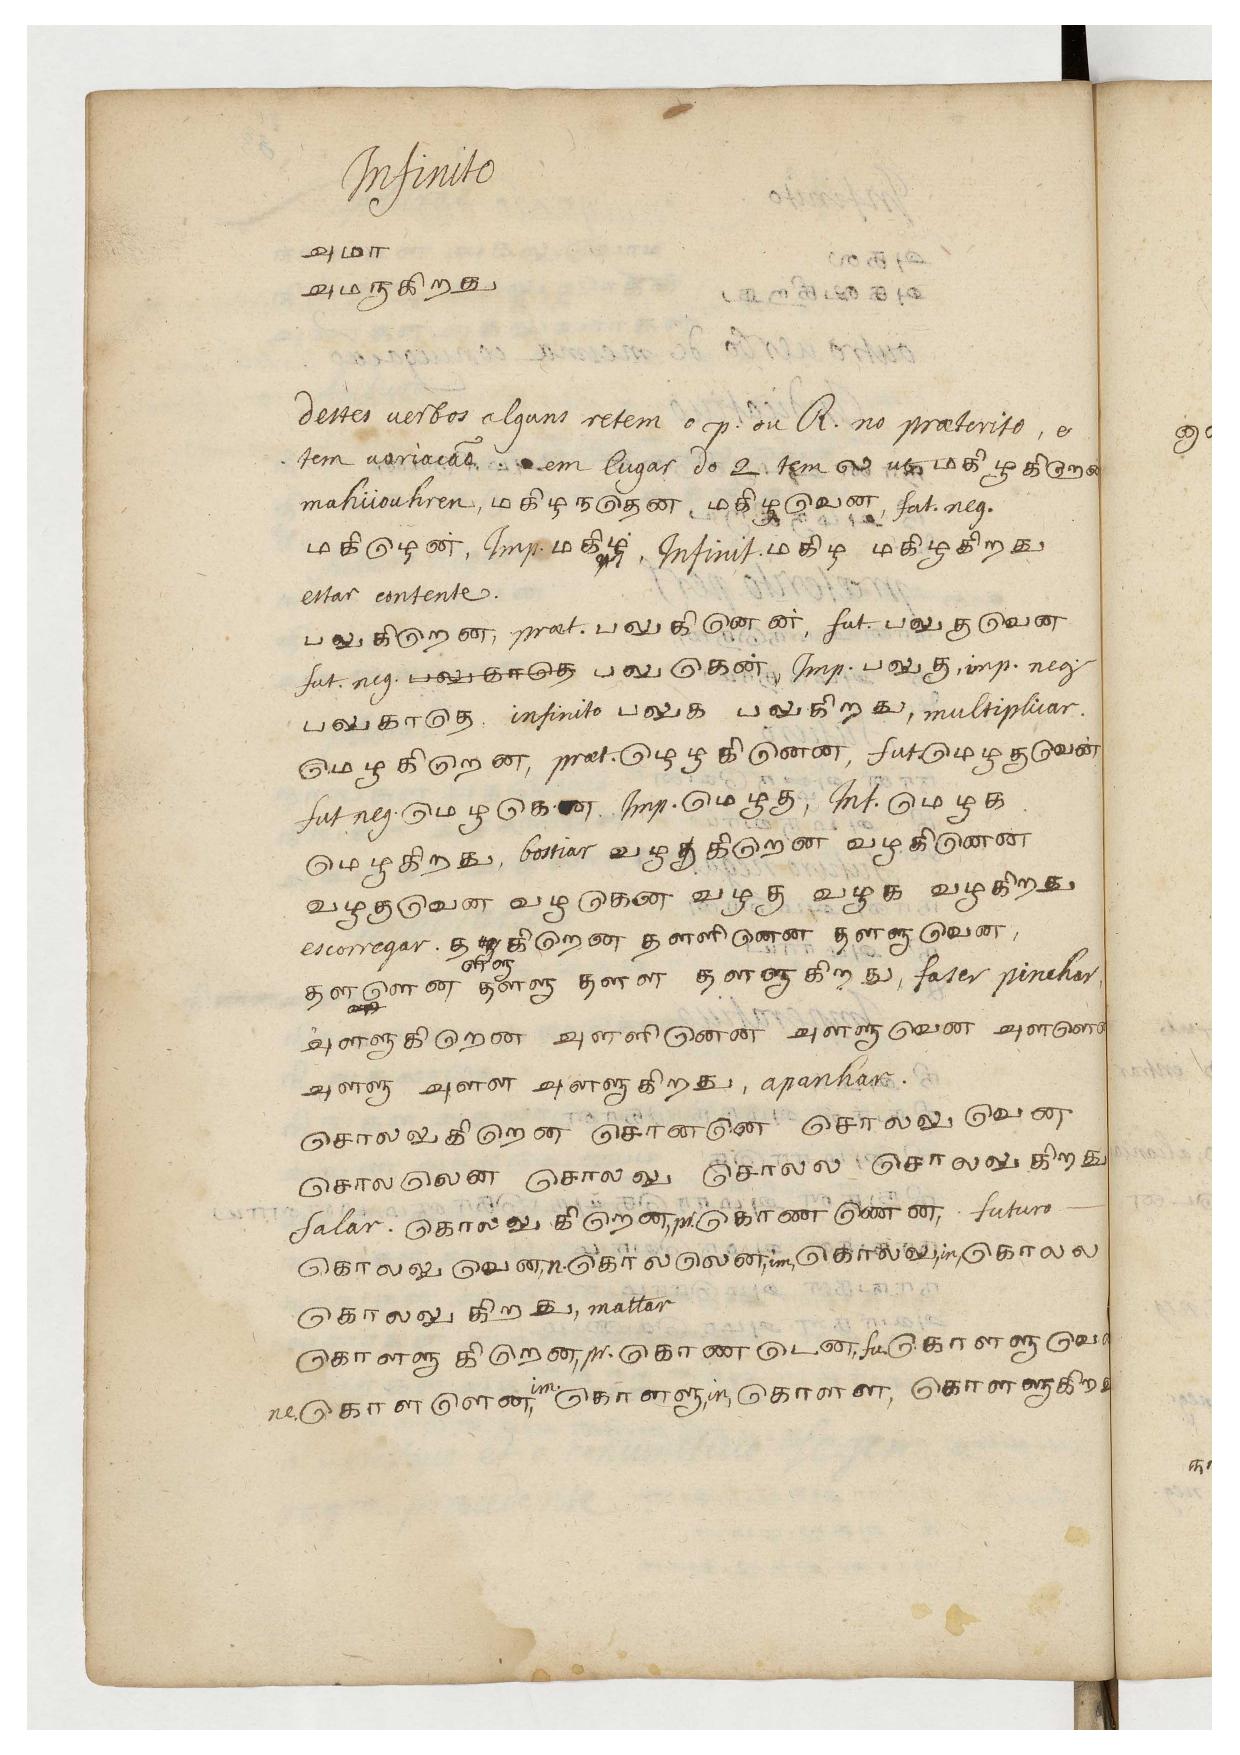 Infinito
அமர
அமருகிறது
destes verbos alguns retem o p. ou R. no præterito, e
tem variação. em lugar do 2. tem ல
mahiiouhren, மகிழநதென மகிழுவென, fut. neg.
மகிழென், Imp. மகிழ், Infinit. மகிழ மகிழகிறது
estar contente.
பலுகிறென, præt. பலுகினென், fut. பலுதுவென
fut. neg. பலுகாதெ பலுகென், Imp. பலுகு, imp. neg.
பலுகாதெ. infinito பலுக பலுகிறது, multiplicar.
மெழகிறென, præt. மெழகினென, fut. மெழகுவென்
fut neg. மெழகென Imp. மெழகு, Inf. மெழக
மெழகிறது, bostiar வழகிறென வழகினென
வழகுவென வழகென வழகு வழக வழகிறது
escorregar. தளளுகிறென தளளினென தளளுவென,
தளளென தளளு தளள தளளுகிறது, faser pinchar,
அளளுகிறென அளளினென அளளுவென அளளென
அளளு அளள அளளுகிறது, apanhar.
சொலலுகிறென சொனனென சொலலுவென
சொலலென சொலலு சொலல சொலலுகிறது
falar. கொலலுகிறென, pr. கொணணென, futuro
கொலலுவென, n. கொலலென, im, கொலலு, in, கொலல
கொலலுகிறது, mattar
கொளளுகிறென, pr. கொணடென, fu. கொளளுவென
ne. கொளளென, im. கொளளு, in, கொளள, கொளளுகிறது